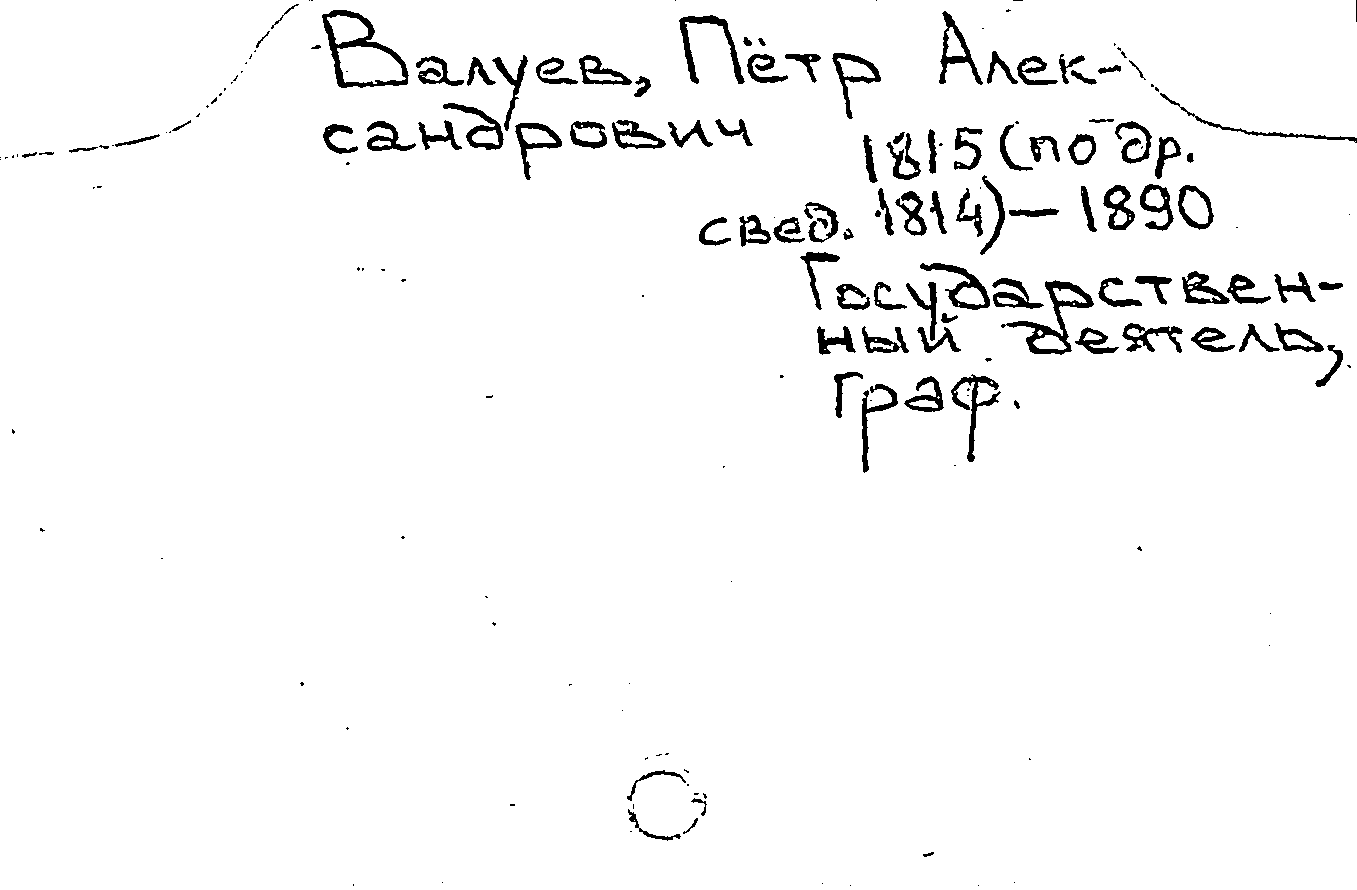 Валуев, Пётр Алек-
сандрович
1815 (по др.
свед. 1814) — 1890
Государствен-
ный деятель,
граф.